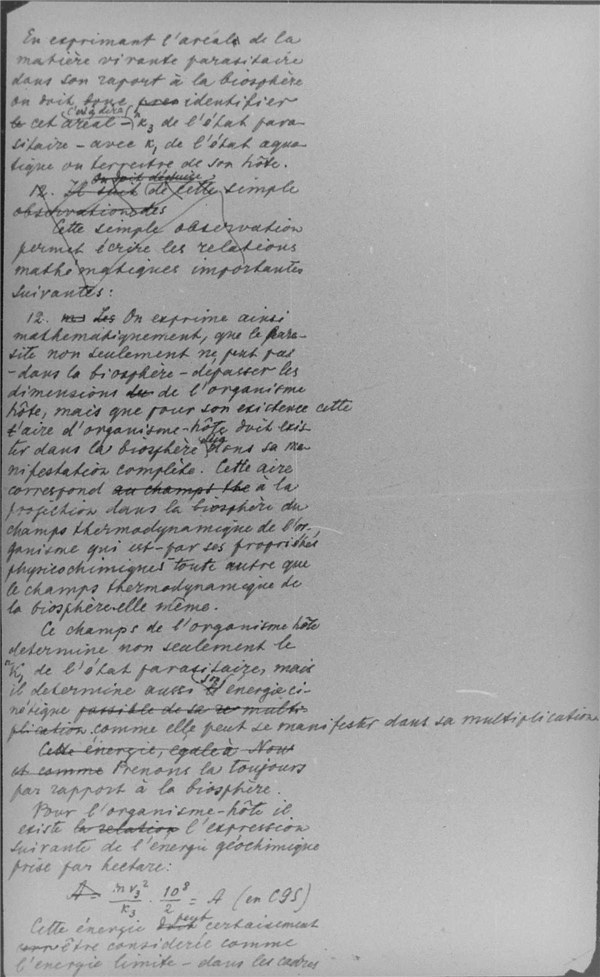 En exprimant l'aréal de la
matière vivante parasitaire
dans son raport à la biosphère
on doit donc identifier
le cet aréal – c'est à dire K₃ de l'état para-
sitaire – avec K₁ de l'état aqua-
tique ou terrestre de son hôte.
12. Il suit on doit déduire de cette simple
observation des
Cette simple observation
permet écrire les relations
mathématiques importantes
suivantes:
12. Les On exprime ainsi
mathématiquement, que le para-
site non seulement ne peut pas
– dans la biosphère – dépasser les
dimensions du de l'organisme
hôte, mais que pour son existence cette
l'aire d'organisme-hôte doit exis-
ter dans la biosphère dans sa ma-
nifestation complète. Cette aire
correspond au champs the à la
projection dans la biosphère du
champs thermodynamique de l'or-
ganisme qui est – par ses propriétés
physicochimiques toute autre que
le champs thermodynamique de
la biosphère elle même.
Ce champs de l'organisme hôte
determine non seulement le
K₁ de l'état parasitaire, mais
il determine aussi son energie ci-
nétique possible de sa multi-
plication comme elle peut se manifester dans sa multiplication.
Cette énergie, egale à Nous
et comme Prenons la toujours
par rapport à la biosphère.
Pour l'organisme-hôte il
existe la relation l'expression
suivante de l'energie géochimique
prise par hectare:
A = mv₃²/K₃ · 10⁸/2 = A (en CGS)
Cette énergie doit peut certaisement
être considerée comme
l'energie limite – dans les cadres